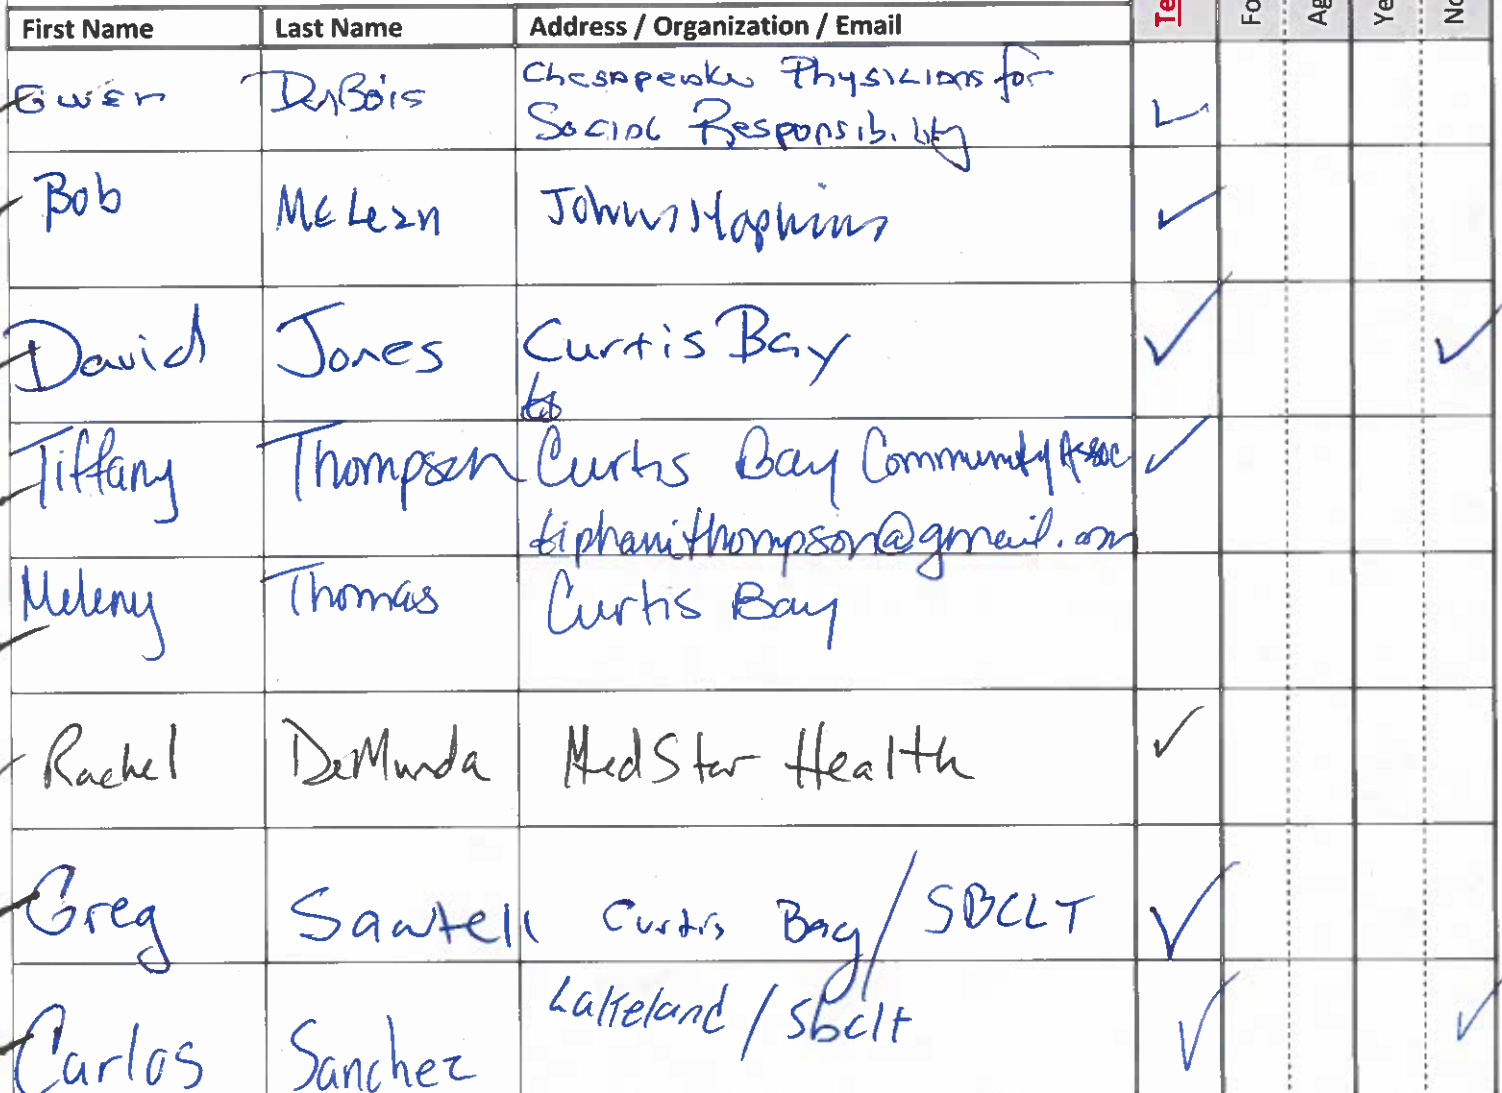 First Name Last Name Address / Organization / Email Te Fo Ag Ye No
Gwen DuBois Chesapeake Physicians for
Social Responsibility ✓
Bob McLean Johns Hopkins ✓
David Jones Curtis Bay ✓ ✓
Tiffany Thompson Curtis Bay Community Assoc ✓
tiphanithompson@gmail.com
Meleny Thomas Curtis Bay
Rachel DeMunda MedStar Health ✓
Greg Sawtell Curtis Bay / SBCLT ✓
Carlos Sanchez Lakeland / Sbclt ✓ ✓